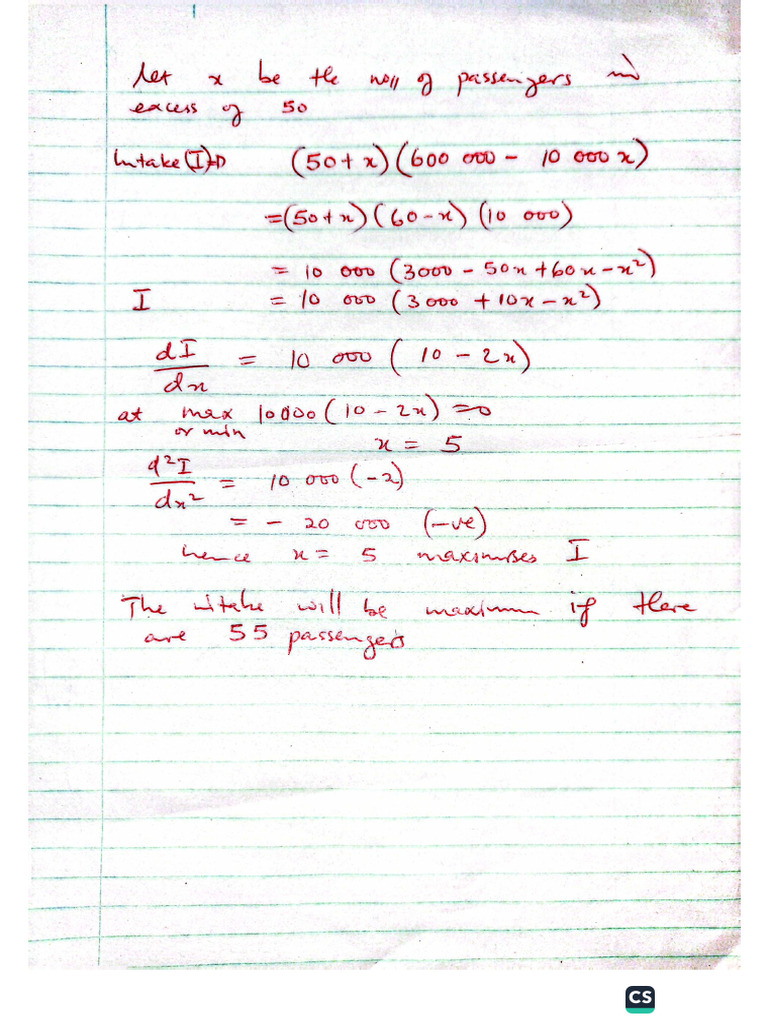 Let x be the no of passengers in
excess of 50
Intake (I) (50 + x)(600 000 - 10 000 x)
= (50 + x)(60 - x)(10 000)
= 10 000 (3000 - 50x + 60x - x²)
I = 10 000 (3000 + 10x - x²)
dI/dx = 10 000 (10 - 2x)
at max 10000 (10 - 2x) = 0
or min x = 5
d²I/dx² = 10 000 (-2)
= - 20 000 (-ve)
hence x = 5 maximises I
The intake will be maximum if there
are 55 passengers
CS